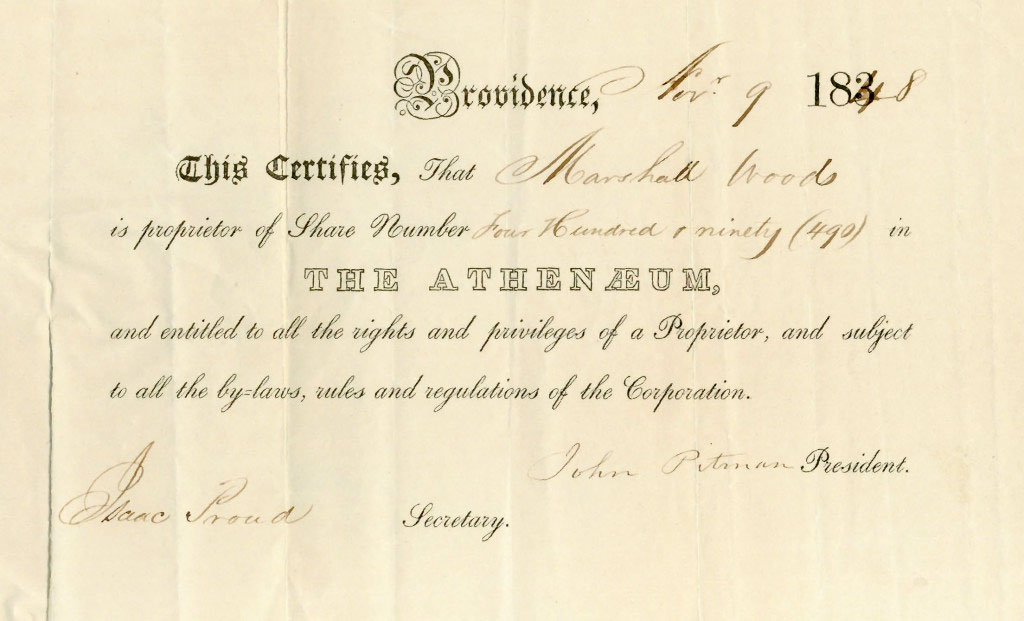 Providence, Novr. 9 1848
This Certifies, That Marshall Woods
is proprietor of Share Number Four Hundred & ninety (490) in
THE ATHENÆUM,
and entitled to all the rights and privileges of a Proprietor, and subject
to all the by=laws, rules and regulations of the Corporation.
John Pitman President.
Isaac Proud Secretary.